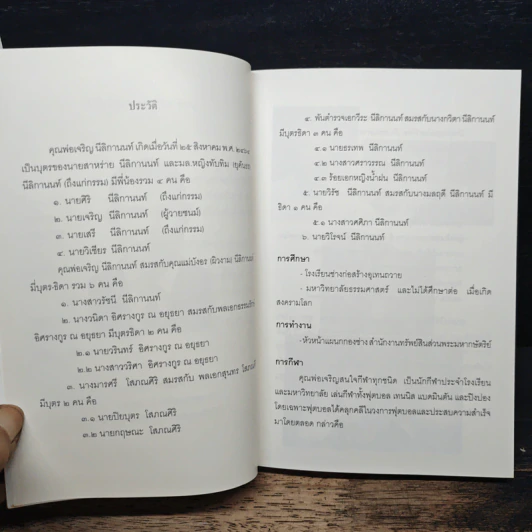 ประวัติ
คุณพ่อเจริญ นีลิกานนท์ เกิดเมื่อวันที่ ๒๕ สิงหาคม พ.ศ.
เป็นบุตรของนายสาหร่าย นีลิกานนท์ และมล.หญิงทับทิม
นีลิกานนท์ (ถึงแก่กรรม) มีพี่น้องรวม ๔ คน คือ
๑. นายศิริ นีลิกานนท์ (ถึงแก่กรรม)
๒. นายเจริญ นีลิกานนท์ (ผู้วายชนม์)
๓. นายเสรี นีลิกานนท์ (ถึงแก่กรรม)
๔. นายวิเชียร นีลิกานนท์
คุณพ่อเจริญ นีลิกานนท์ สมรสกับคุณแม่บังอร (ผิวงาม) นีลิกานนท์
มีบุตร-ธิดา รวม ๖ คน คือ
๑. นางสาวรัชนี นีลิกานนท์
๒. นางวนิดา อิศรางกูร ณ อยุธยา สมรสกับพลเอก
อิศรางกูร ณ อยุธยา มีบุตรธิดา ๒ คน คือ
๒.๑ นายวรินทร์ อิศรางกูร ณ อยุธยา
๒.๒ นางสาววริศา อิศรางกูร ณ อยุธยา
๓. นางมารศรี โสภณศิริ สมรสกับ พลเอกสุนทร โสภณศิริ
มีบุตร ๒ คน คือ
๓.๑ นายปิยบุตร โสภณศิริ
๓.๒ นายกฤษณะ โสภณศิริ
๔. พันตำรวจเอกวีระ นีลิกานนท์ สมรสกับนางกวิตา นีลิกานนท์
มีบุตรธิดา ๓ คน คือ
๔.๑ นายธรเทพ นีลิกานนท์
๔.๒ นางสาวศราวรรณ นีลิกานนท์
๔.๓ ร้อยเอกหญิงน้ำฝน นีลิกานนท์
๕. นายวิรัช นีลิกานนท์ สมรสกับนางมลฤดี นีลิกานนท์ มี
ธิดา ๑ คน คือ
๕.๑ นางสาวศศิภา นีลิกานนท์
๖. นายวิโรจน์ นีลิกานนท์
การศึกษา
- โรงเรียนช่างก่อสร้างอุเทนถวาย
- มหาวิทยาลัยธรรมศาสตร์ และไม่ได้ศึกษาต่อ เมื่อเกิด
สงครามโลก
การทำงาน
-หัวหน้าแผนกกองช่าง สำนักงานทรัพย์สินส่วนพระมหากษัตริย์
การกีฬา
คุณพ่อเจริญสนใจกีฬาทุกชนิด เป็นนักกีฬาประจำโรงเรียน
และมหาวิทยาลัย เล่นกีฬาทั้งฟุตบอล เทนนิส แบดมินตัน และปิงปอง
โดยเฉพาะฟุตบอลได้คลุกคลีในวงการฟุตบอลและประสบความสำเร็จ
มาโดยตลอด กล่าวคือ